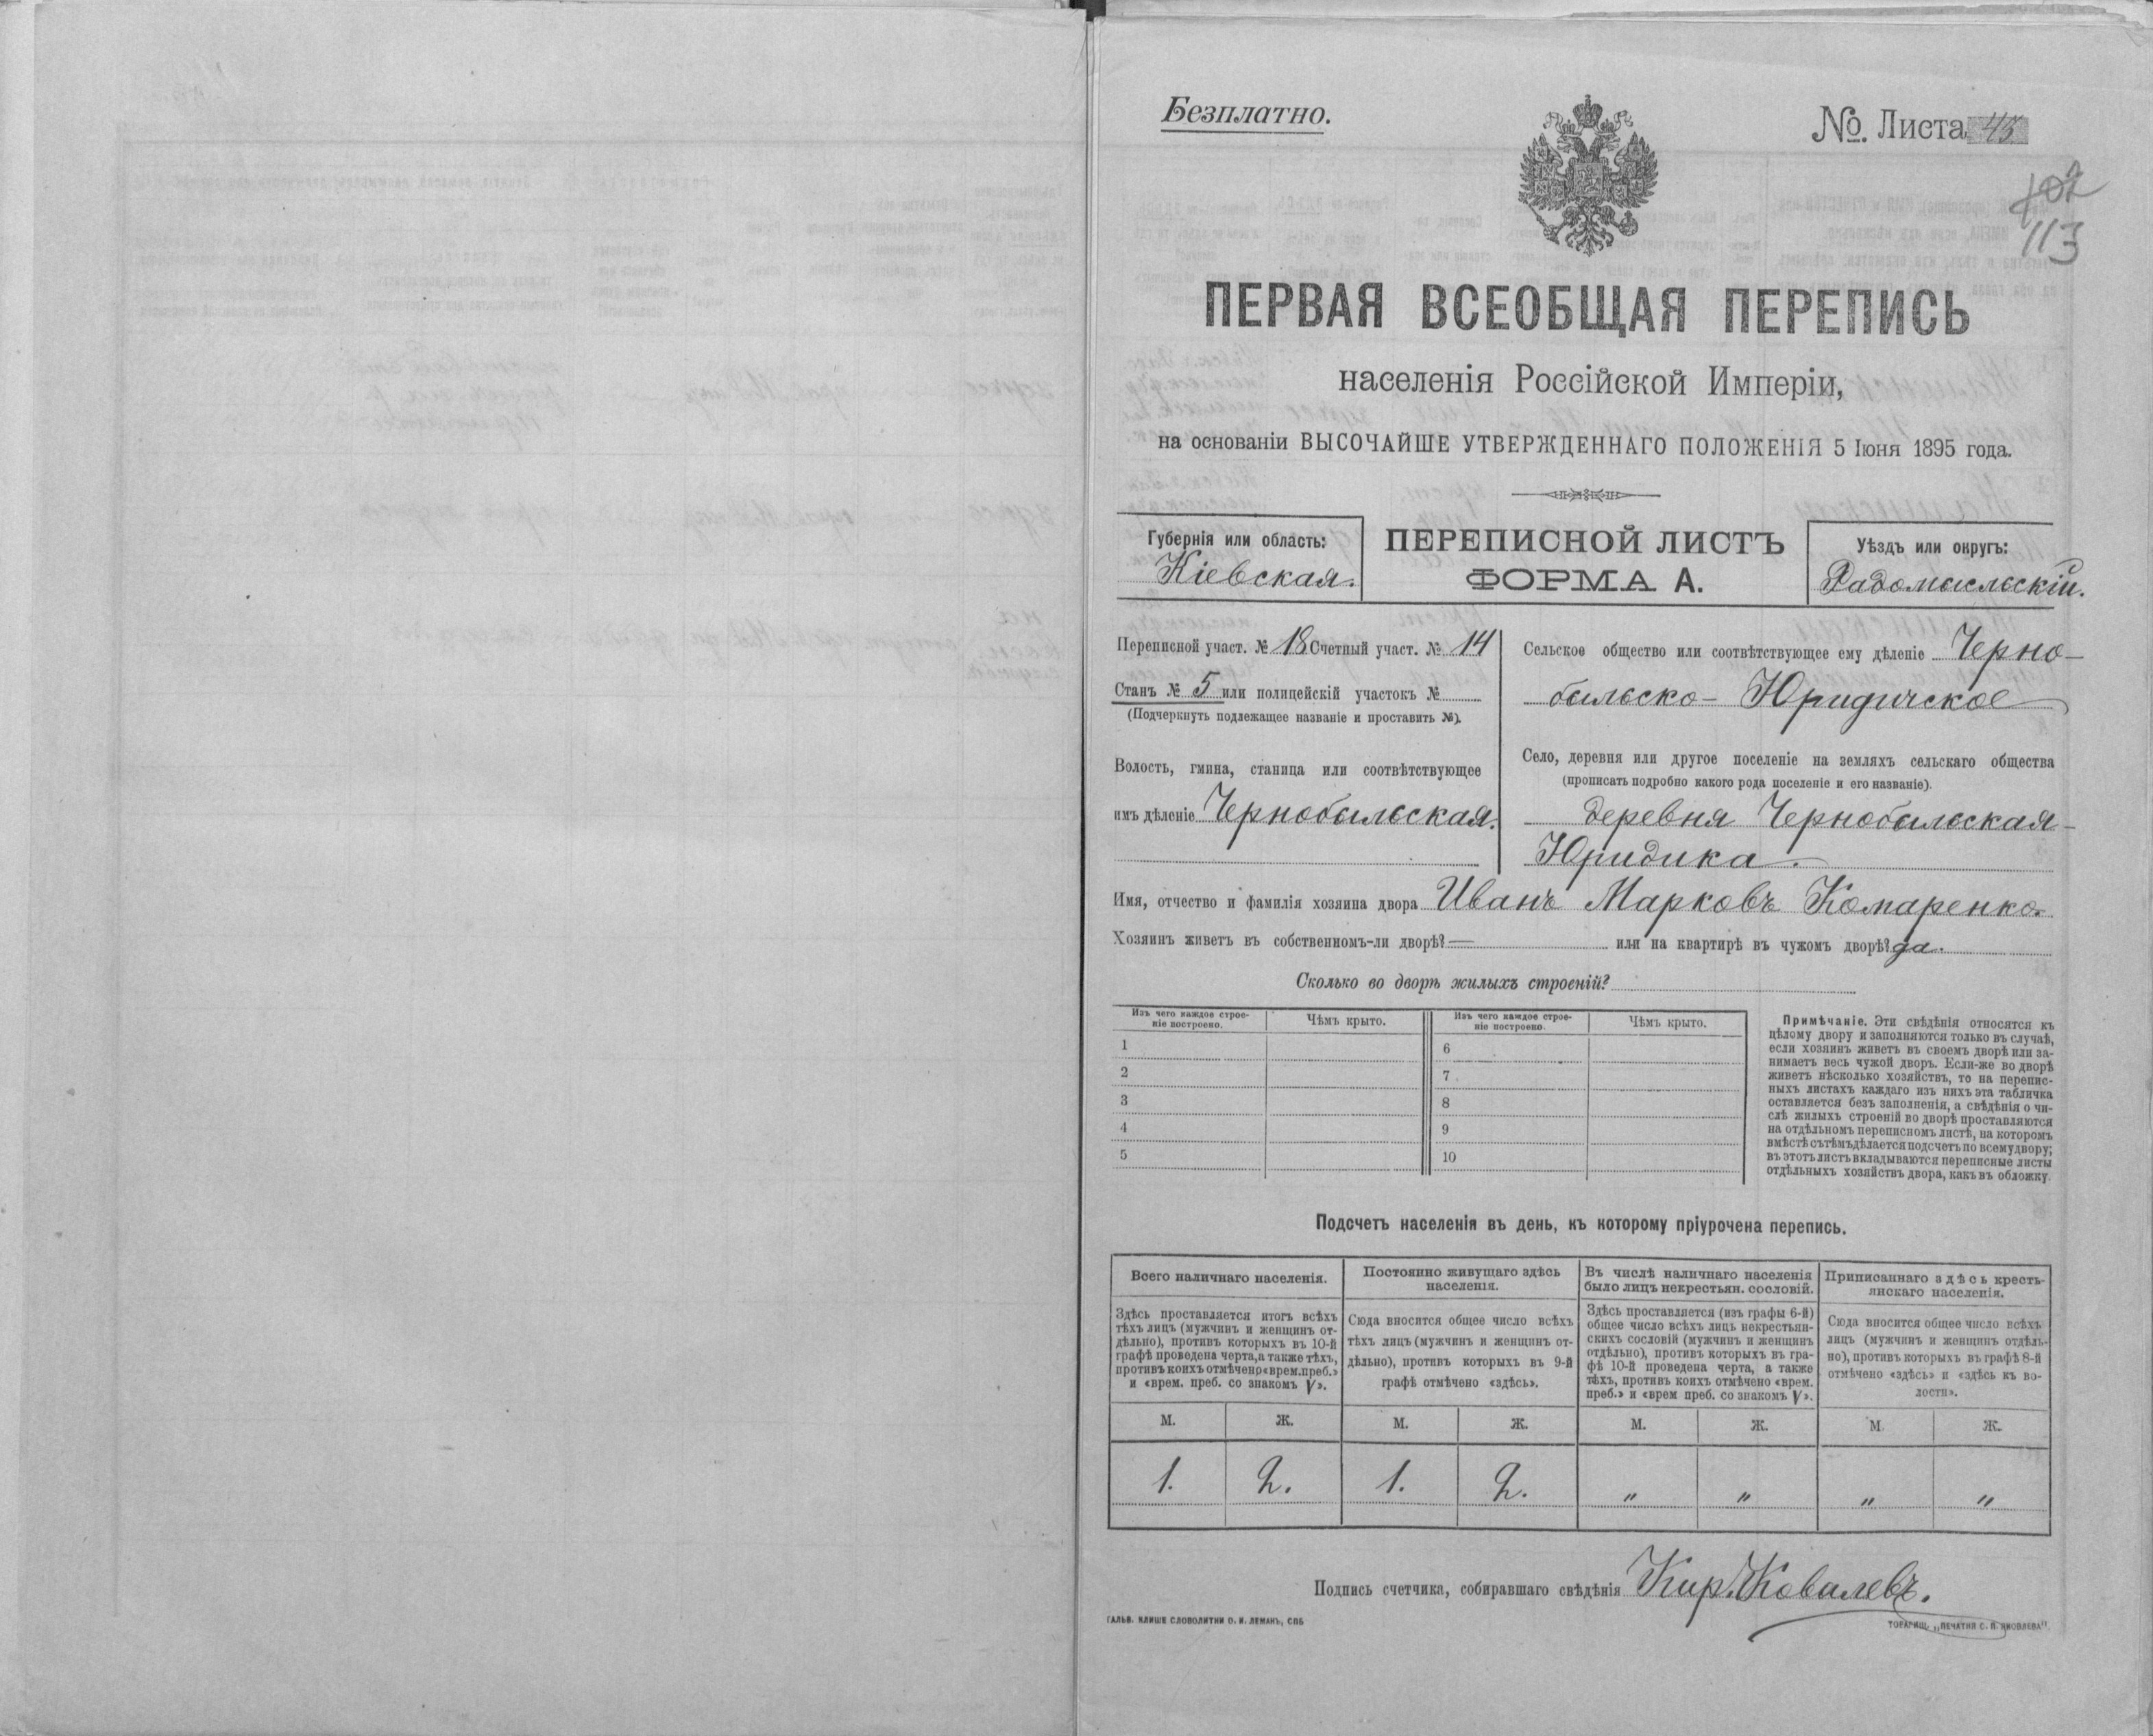 Безплатно.
№. Листа 45
107
113
ПЕРВАЯ ВСЕОБЩАЯ ПЕРЕПИСЬ
населенія Россійской Имперіи,
на основаніи ВЫСОЧАЙШЕ УТВЕРЖДЕННАГО ПОЛОЖЕНІЯ 5 Іюня 1895 года.
Губернія или область:
Кіевская.
ПЕРЕПИСНОЙ ЛИСТЪ
ФОРМА А.
Уѣздъ или округъ:
Радомысльскій.
Переписной участ. № 18 Счетный участ. № 14
Станъ № 5 или полицейскій участокъ №
(Подчеркнуть подлежащее названіе и проставить №).
Волость, гмина, станица или соотвѣтствующее
имъ дѣленіе Чернобыльская.
Сельское общество или соотвѣтствующее ему дѣленіе Черно-
быльско-Юридичское
Село, деревня или другое поселеніе на земляхъ сельскаго общества
(прописать подробно какого рода поселеніе и его названіе).
деревня Чернобыльская-
Юридика.
Имя, отчество и фамилія хозяина двора Иванъ Марковъ Комаренко.
Хозяинъ живетъ въ собственномъ-ли дворѣ? — или на квартирѣ въ чужомъ дворѣ? да.
Сколько во дворѣ жилыхъ строеній?
Изъ чего каждое строе-
ніе построено.
Чѣмъ крыто.
Изъ чего каждое строе-
ніе построено.
Чѣмъ крыто.
1 6
2 7
3 8
4 9
5 10
Примѣчаніе. Эти свѣдѣнія относятся къ
цѣлому двору и заполняются только въ случаѣ,
если хозяинъ живетъ въ своемъ дворѣ или за-
нимаетъ весь чужой дворъ. Если-же во дворѣ
живетъ нѣсколько хозяйствъ, то на перепис-
ныхъ листахъ каждаго изъ нихъ эта табличка
оставляется безъ заполненія, а свѣдѣнія о чи-
слѣ жилыхъ строеній во дворѣ проставляются
на отдѣльномъ переписномъ листѣ, на которомъ
вмѣстѣ съ тѣмъ дѣлается подсчетъ по всему двору;
въ этотъ листъ вкладываются переписные листы
отдѣльныхъ хозяйствъ двора, какъ въ обложку.
Подсчетъ населенія въ день, къ которому пріурочена перепись.
Всего наличнаго населенія.
Здѣсь проставляется итогъ всѣхъ
тѣхъ лицъ (мужчинъ и женщинъ от-
дѣльно), противъ которыхъ въ 10-й
графѣ проведена черта, а также тѣхъ,
противъ коихъ отмѣчено «врем. преб.»
и «врем. преб. со знакомъ V».
Постоянно живущаго здѣсь
населенія.
Сюда вносится общее число всѣхъ
тѣхъ лицъ (мужчинъ и женщинъ от-
дѣльно), противъ которыхъ въ 9-й
графѣ отмѣчено «здѣсь».
Въ числѣ наличнаго населенія
было лицъ некрестьян. сословій.
Здѣсь проставляется (изъ графы 6-й)
общее число всѣхъ лицъ некрестьян-
скихъ сословій (мужчинъ и женщинъ
отдѣльно), противъ которыхъ въ гра-
фѣ 10-й проведена черта, а также
тѣхъ, противъ коихъ отмѣчено «врем.
преб.» и «врем преб. со знакомъ V».
Приписаннаго здѣсь кресть-
янскаго населенія.
Сюда вносится общее число всѣхъ
лицъ (мужчинъ и женщинъ отдѣль-
но), противъ которыхъ въ графѣ 8-й
отмѣчено «здѣсь» и «здѣсь къ во-
лости».
М. Ж. М. Ж. М. Ж. М. Ж.
1. 2. 1. 2. „ „ „ „
Подпись счетчика, собиравшаго свѣдѣнія Кир. Ковалевъ.
ГАЛЬВ. КЛИШЕ СЛОВОЛИТНИ О. И. ЛЕМАНЪ, СПБ
ТОВАРИЩ. „ПЕЧАТНЯ С. П. ЯКОВЛЕВА"